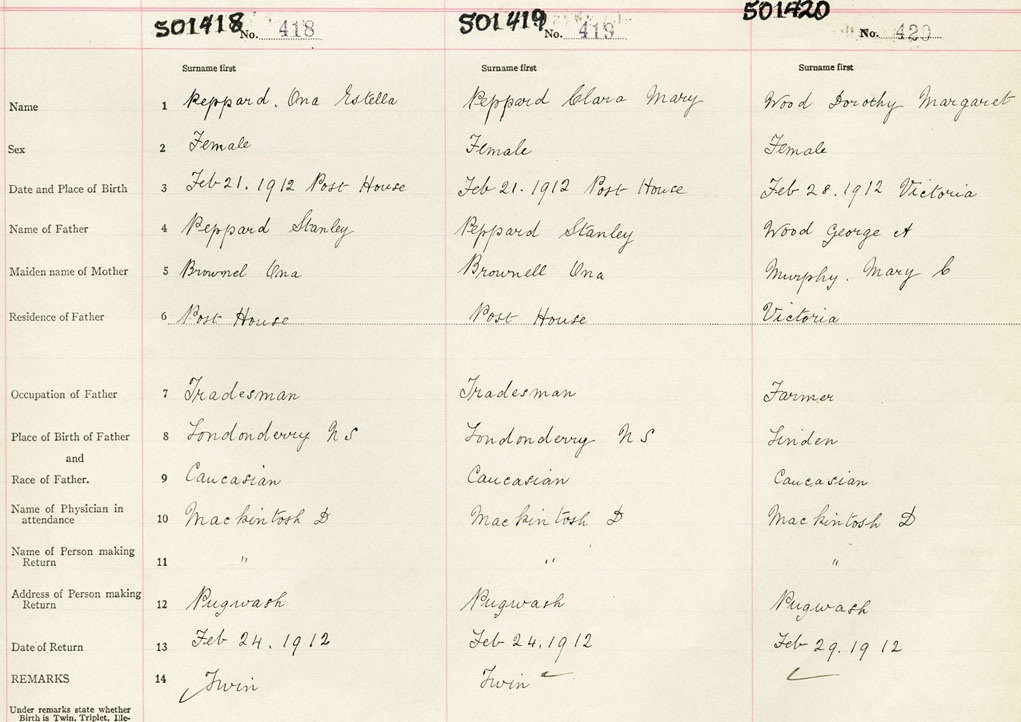 501418 No. 418 501419 No. 419 501420 No. 420
Surname first Surname first Surname first
Name 1 Peppard. Ona Estella Peppard Clara Mary Wood Dorothy Margaret
Sex 2 Female Female Female
Date and Place of Birth 3 Feb 21. 1912 Post House Feb 21. 1912 Post House Feb 28. 1912 Victoria
Name of Father 4 Peppard Stanley Peppard Stanley Wood George A
Maiden name of Mother 5 Brownel Ona Brownell Ona Murphy. Mary C
Residence of Father 6 Post House Post House Victoria
Occupation of Father 7 Tradesman Tradesman Farmer
Place of Birth of Father 8 Londonderry N S Londonderry N S Linden
and
Race of Father. 9 Caucasian Caucasian Caucasian
Name of Physician in
attendance 10 Mackintosh D Mackintosh D Mackintosh D
Name of Person making
Return 11 " " "
Address of Person making
Return 12 Pugwash Pugwash Pugwash
Date of Return 13 Feb 24. 1912 Feb 24. 1912 Feb 29. 1912
REMARKS 14 Twin Twin
Under remarks state whether
Birth is Twin, Triplet, Ille-